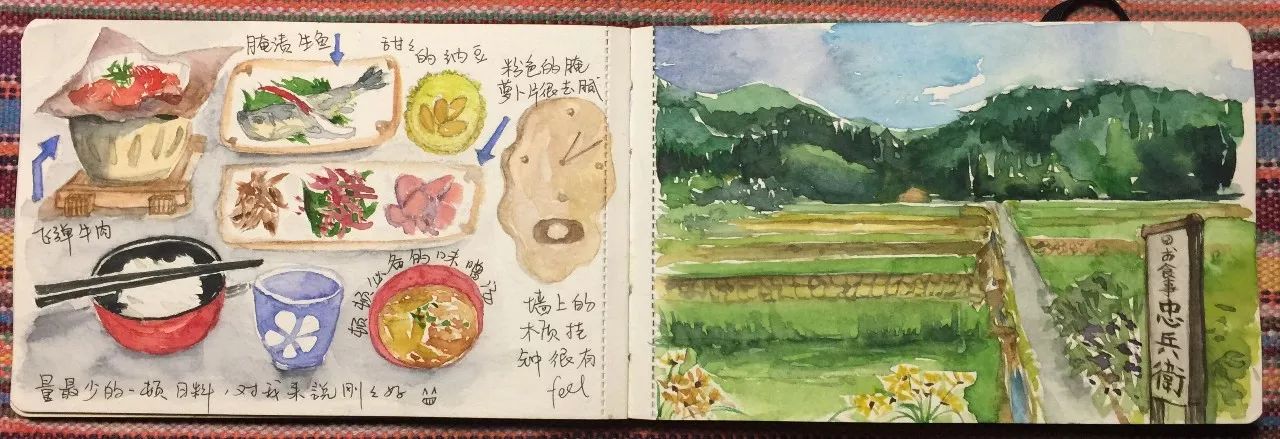 腌渍生鱼
甜々
的纳豆
粉色的腌
萝卜片很去腻
飞弹牛肉
顿顿必备的味噌汤
墙上的
木质挂
钟很有
feel
量最少的一顿日料，对我来説刚々好
お食事
忠兵衛